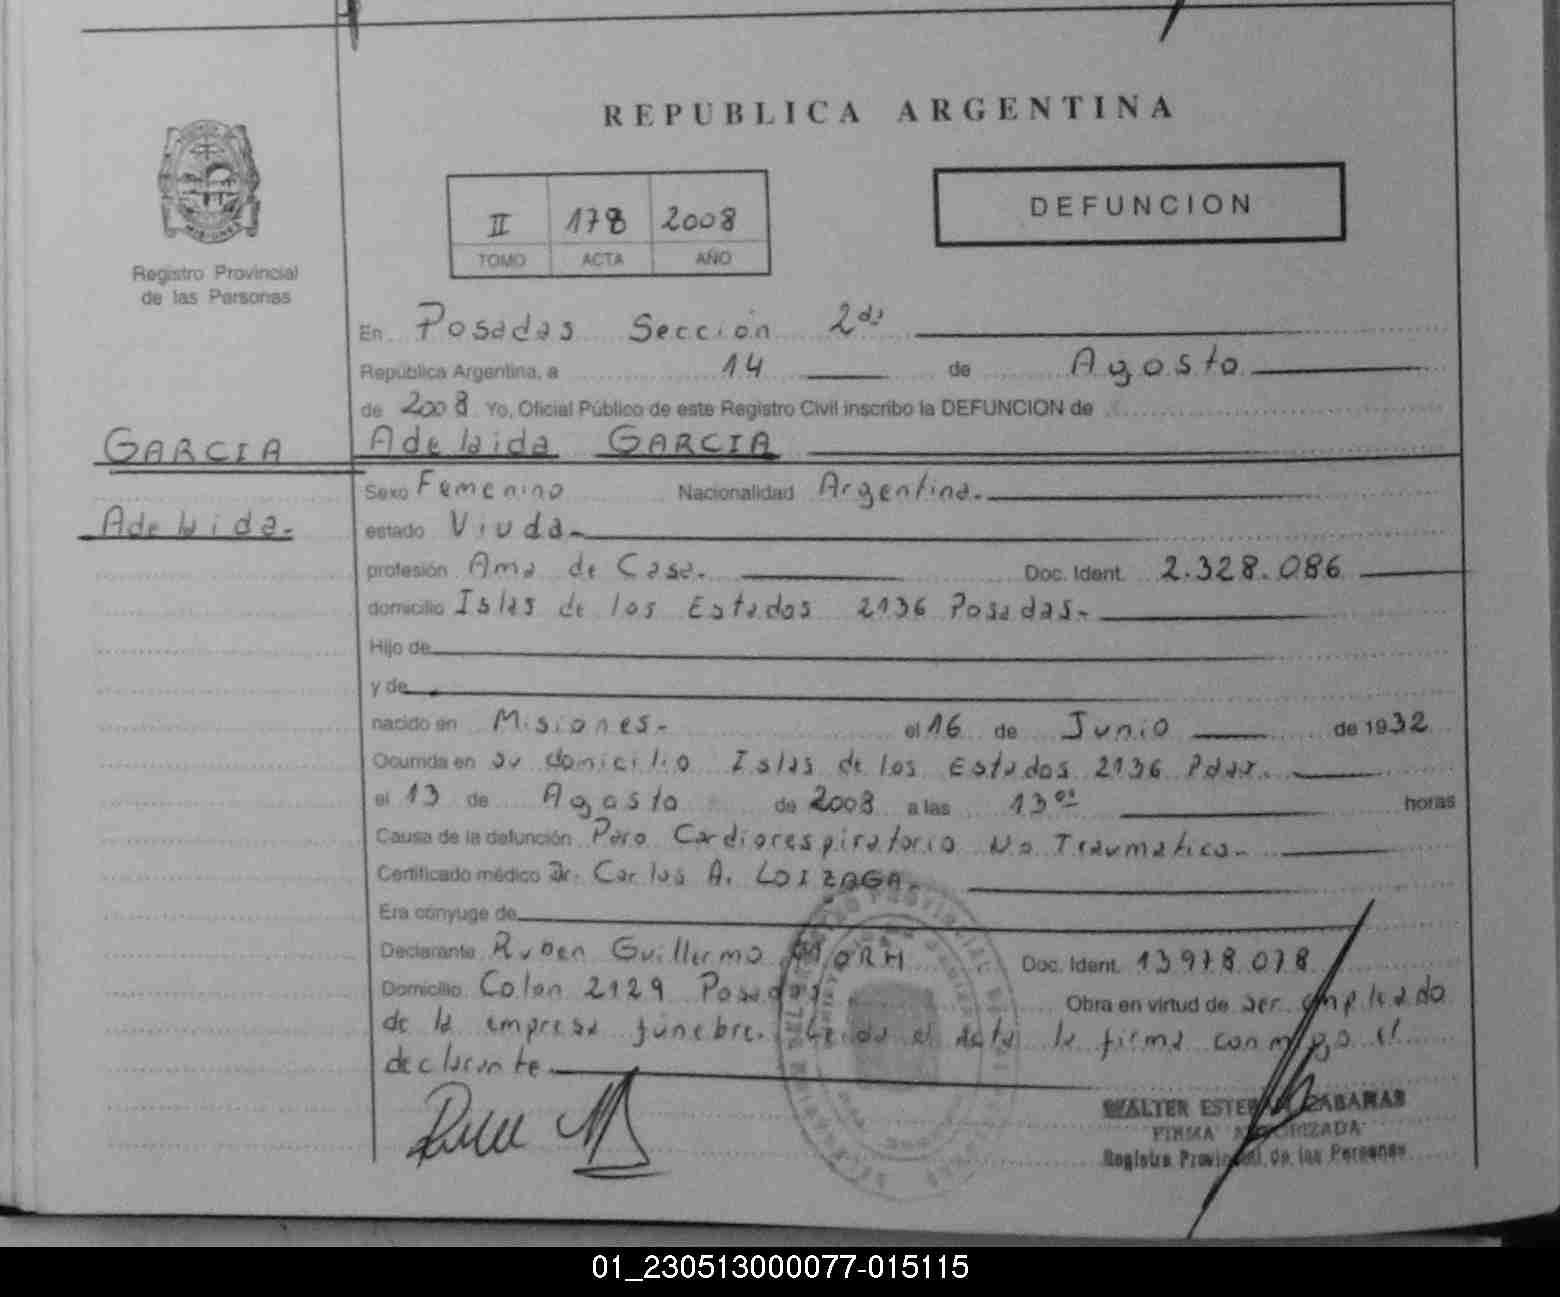 REPUBLICA ARGENTINA
Registro Provincial
de las Personas
II 178 2008
TOMO ACTA AÑO
DEFUNCION
En Posadas Sección 2da
República Argentina, a 14 de Agosto
de 2008 Yo, Oficial Público de este Registro Civil inscribo la DEFUNCION de
GARCIA
Adelaida.
Adelaida GARCIA
Sexo Femenino Nacionalidad Argentina.
estado Viuda
profesión Ama de Casa. Doc. Ident. 2.328.086
domicilio Islas de los Estados 2136 Posadas.
Hijo de
y de
nacido en Misiones el 16 de Junio de 1932
Ocurrida en su domicilio Islas de los Estados 2136 Pdas.
el 13 de Agosto de 2008 a las 13 horas
Causa de la defunción Paro Cardiorespiratorio No Traumatico
Certificado médico Dr. Carlos A. LOIZAGA.
Era cónyuge de
Declarante Ruben Guillermo Doc. Ident. 13978.078
Domicilio Colon 2129 Posadas Obra en virtud de ser empleado
de la empresa funebre. Leida el acta la firma conmigo el
declarante
WALTER ZABARAS
FIRMA AUTORIZADA
Registro Provincial de las Personas
01_230513000077-015115